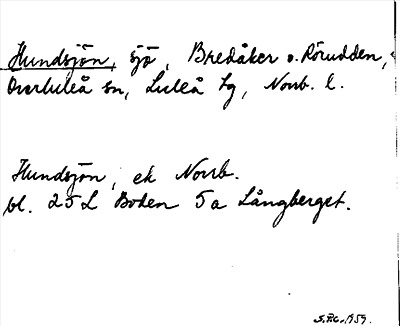 Hundsjön, sjö, Bredåker o. Rörudden,
Överluleå sn, Luleå tg, Norrb. l.
Hundsjön, ek Norrb.
bl. 25 L Boden 5a Långberget.
1959.